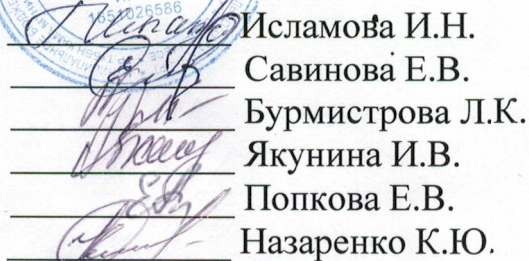 1651026586
Исламова И.Н.
Савинова Е.В.
Бурмистрова Л.К.
Якунина И.В.
Попкова Е.В.
Назаренко К.Ю.